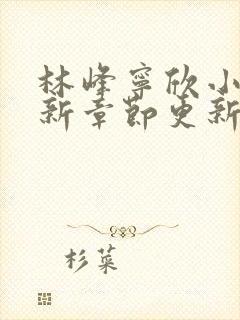 林峰宁欣小
新章节更新
杉菜